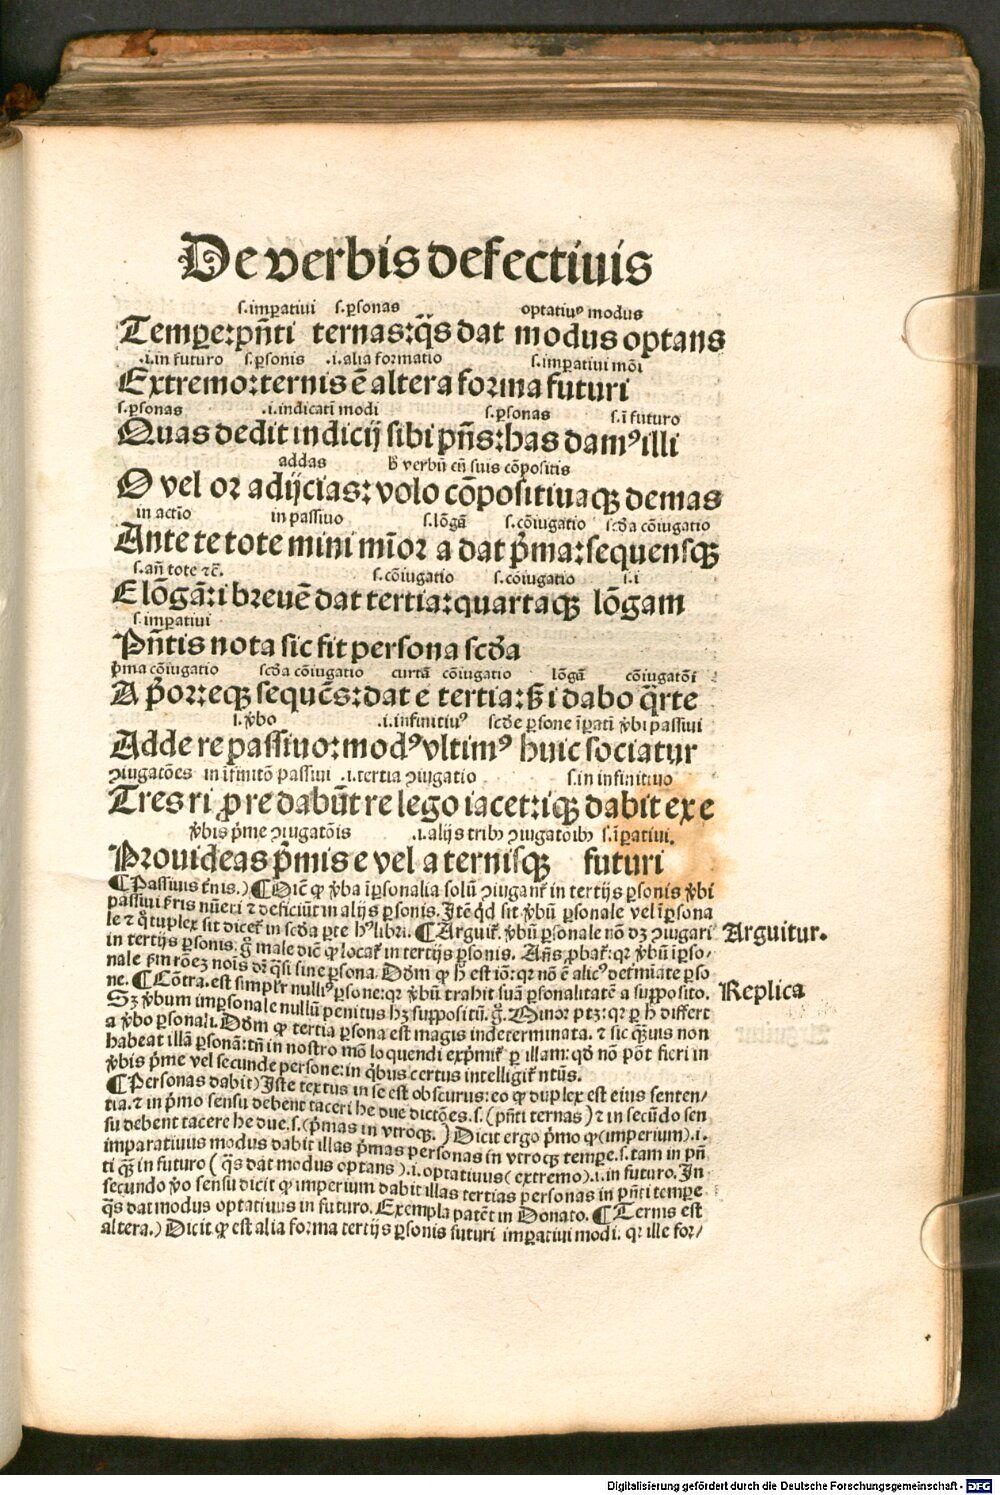 De verbis defectiuis
s.impatiui s.psonas optatiuꝰ modus
Tempe: pñti ternas: q̃s dat modus optans
.i.in futuro s.psonis .i.alia formatio s.impatiui mōi
Extremo: ternis ē altera forma futuri
s.psonas .i.indicati modi s.psonas s.ī futuro
Quas dedit indicij sibi pñs: has damꝰ illi
addas verbū cū suis cōpositis
O vel or adijcias: volo cōpositiuaqꝫ demas
in actio in passiuo s.lōgā s.cōiugatio scd'a cōiugatio
Ante te tote mini mīor a dat p̄ma: sequensqꝫ
s.añ tote ⁊c̄. s.cōiugatio s.cōiugatio s.i
E lōgā: i breuē dat tertia: quartaqꝫ lōgam
s.impatiui
Pñtis nota sic fit persona scd'a
p̄ma cōiugatio scd'a cōiugatio curtā cōiugatio lōgā cōiugatōi
A por: eqꝫ sequēs: dat e tertia: ß i dabo q̄rte
i.v̓bo .i.infinitiuꝰ scd'e psone īpati v̓bi passiui
Adde re passiuo: modꝰ vltimꝰ huic sociatur
ꝯiugatōes in īfinitō passiui .i.tertia ꝯiugatio s.in infinitiuo
Tres ri ꝓ re dabūt re lego iacet: iqꝫ dabit ex e
v̓bis p̄me ꝯiugatōis .i.alijs tribꝫ ꝯiugatōibꝫ s.īpatiui.
Prouideas p̄mis e vel a ternisqꝫ futuri
¶ Passiuis t̄nis.) ¶ Dic̄ ꝙ v̓ba īpsonalia solū ꝯiugant̄ in tertijs psonis v̓bi
passiui t̄ris nūeri ⁊ deficiūt in alijs psonis. Itē qd sit v̓bū psonale vel īpsona
le ⁊ q̄tuplex sit dicet̄ in scd'a pte hꝰ libri. ¶ Arguit̄. v̓bū psonale nō dꝫ ꝯiugari
Arguitur.
in tertijs psonis. g̊ male dic̄ ꝙ locat̄ in tertijs psonis. Añs ꝓbat̄: qꝛ v̓bū īpso-
nale p̄m rōeꝫ nois dr̄ q̄si sine psona. Dd'm ꝙ h̄ est iō: qꝛ nō ē alicꝰ det'miate pso
ne. ¶ Cōtra. est simplr̄ nulliꝰ psone: qꝛ v̓bū trahit suā psonalitatē a supposito.
Replica
Sꝫ v̓bum impsonale nullū penitus hꝫ suppositū. g̊. Minor ptꝫ: qꝛ p h̄ differt
a v̓bo psonali. Dd'm ꝙ tertia psona est magis indeterminata. ⁊ sic q̄uis non
habeat illā psonā: tn̄ in nostro mō loquendi exp̄mit̄ p illam: qd' nō pōt fieri in
v̓bis p̄me vel secunde persone: in qb̓us certus intelligit̄ ntūs.
¶ Personas dabit) Iste textus in se est obscurus: eo ꝙ duplex est eius senten/
tia. ⁊ in p̄mo sensu debent taceri he due dictōes. s. (pñti ternas) ⁊ in secūdo sen
su debent tacere he due. s. (p̄mas in vtroqꝫ.) Dicit ergo p̄mo ꝙ (imperium) .i.
imparatiuus modus dabit illas p̄mas personas in vtroqꝫ tempe. s. tam in pñ
ti qꝫ̄ in futuro (q̄s dat modus optans) .i. optatiuus (extremo) .i. in futuro. In
secundo v̓o sensu dicit ꝙ imperium dabit illas tertias personas in pñti tempe
q̄s dat modus optatiuus in futuro. Exempla patēt in Donato. ¶ Ternis est
altera.) Dicit ꝙ est alia forma tertijs psonis futuri impatiui modi. qꝛ ille for/
Digitalisierung gefördert durch die Deutsche Forschungsgemeinschaft - DFG